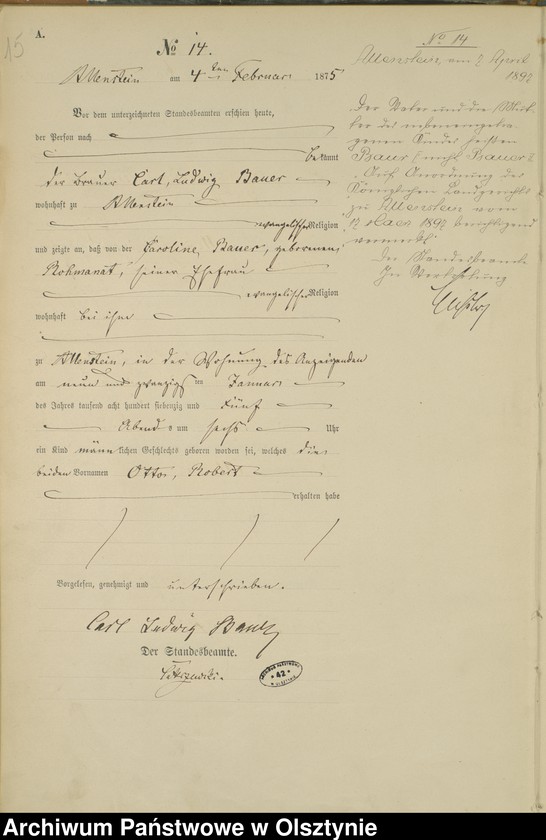 15
A.
No 14.
Allenstein am 4ten Februar 1875
Vor dem unterzeichneten Standesbeamten erschien heute,
der Person nach
bekannt
der Brauer Carl, Ludwig Bauer
wohnhaft zu Allenstein
evangelischer Religion
und zeigte an, daß von der Caroline, Bauer, geborenen
Rohmanat, seiner Ehefrau
evangelischer Religion
wohnhaft bei ihm
zu Allenstein, in der Wohnung des Anzeigenden
am neun und zwanzigsten Januar
des Jahres tausend acht hundert siebenzig und fünf
Abends um sechs Uhr
ein Kind männlichen Geschlechts geboren worden sei, welches die
beiden Vornamen Otto, Robert
erhalten habe
Vorgelesen, genehmigt und unterschrieben.
Carl Ludwig Bauer
Der Standesbeamte.
No 14
Allenstein, am 2 April
1892
Der Vater und die Mutter
des nebeneingetragenen
Kindes heißen
Baur (nicht Bauer).
Auf Anordnung des
Königlichen Landgerichts
zu Allenstein vom
12 März 1892 berichtigend
vermerkt.
Der Standesbeamte
In Vertretung
ARCHIWUM PAŃSTWOWE
* 42 *
W OLSZTYNIE
Archiwum Państwowe w Olsztynie